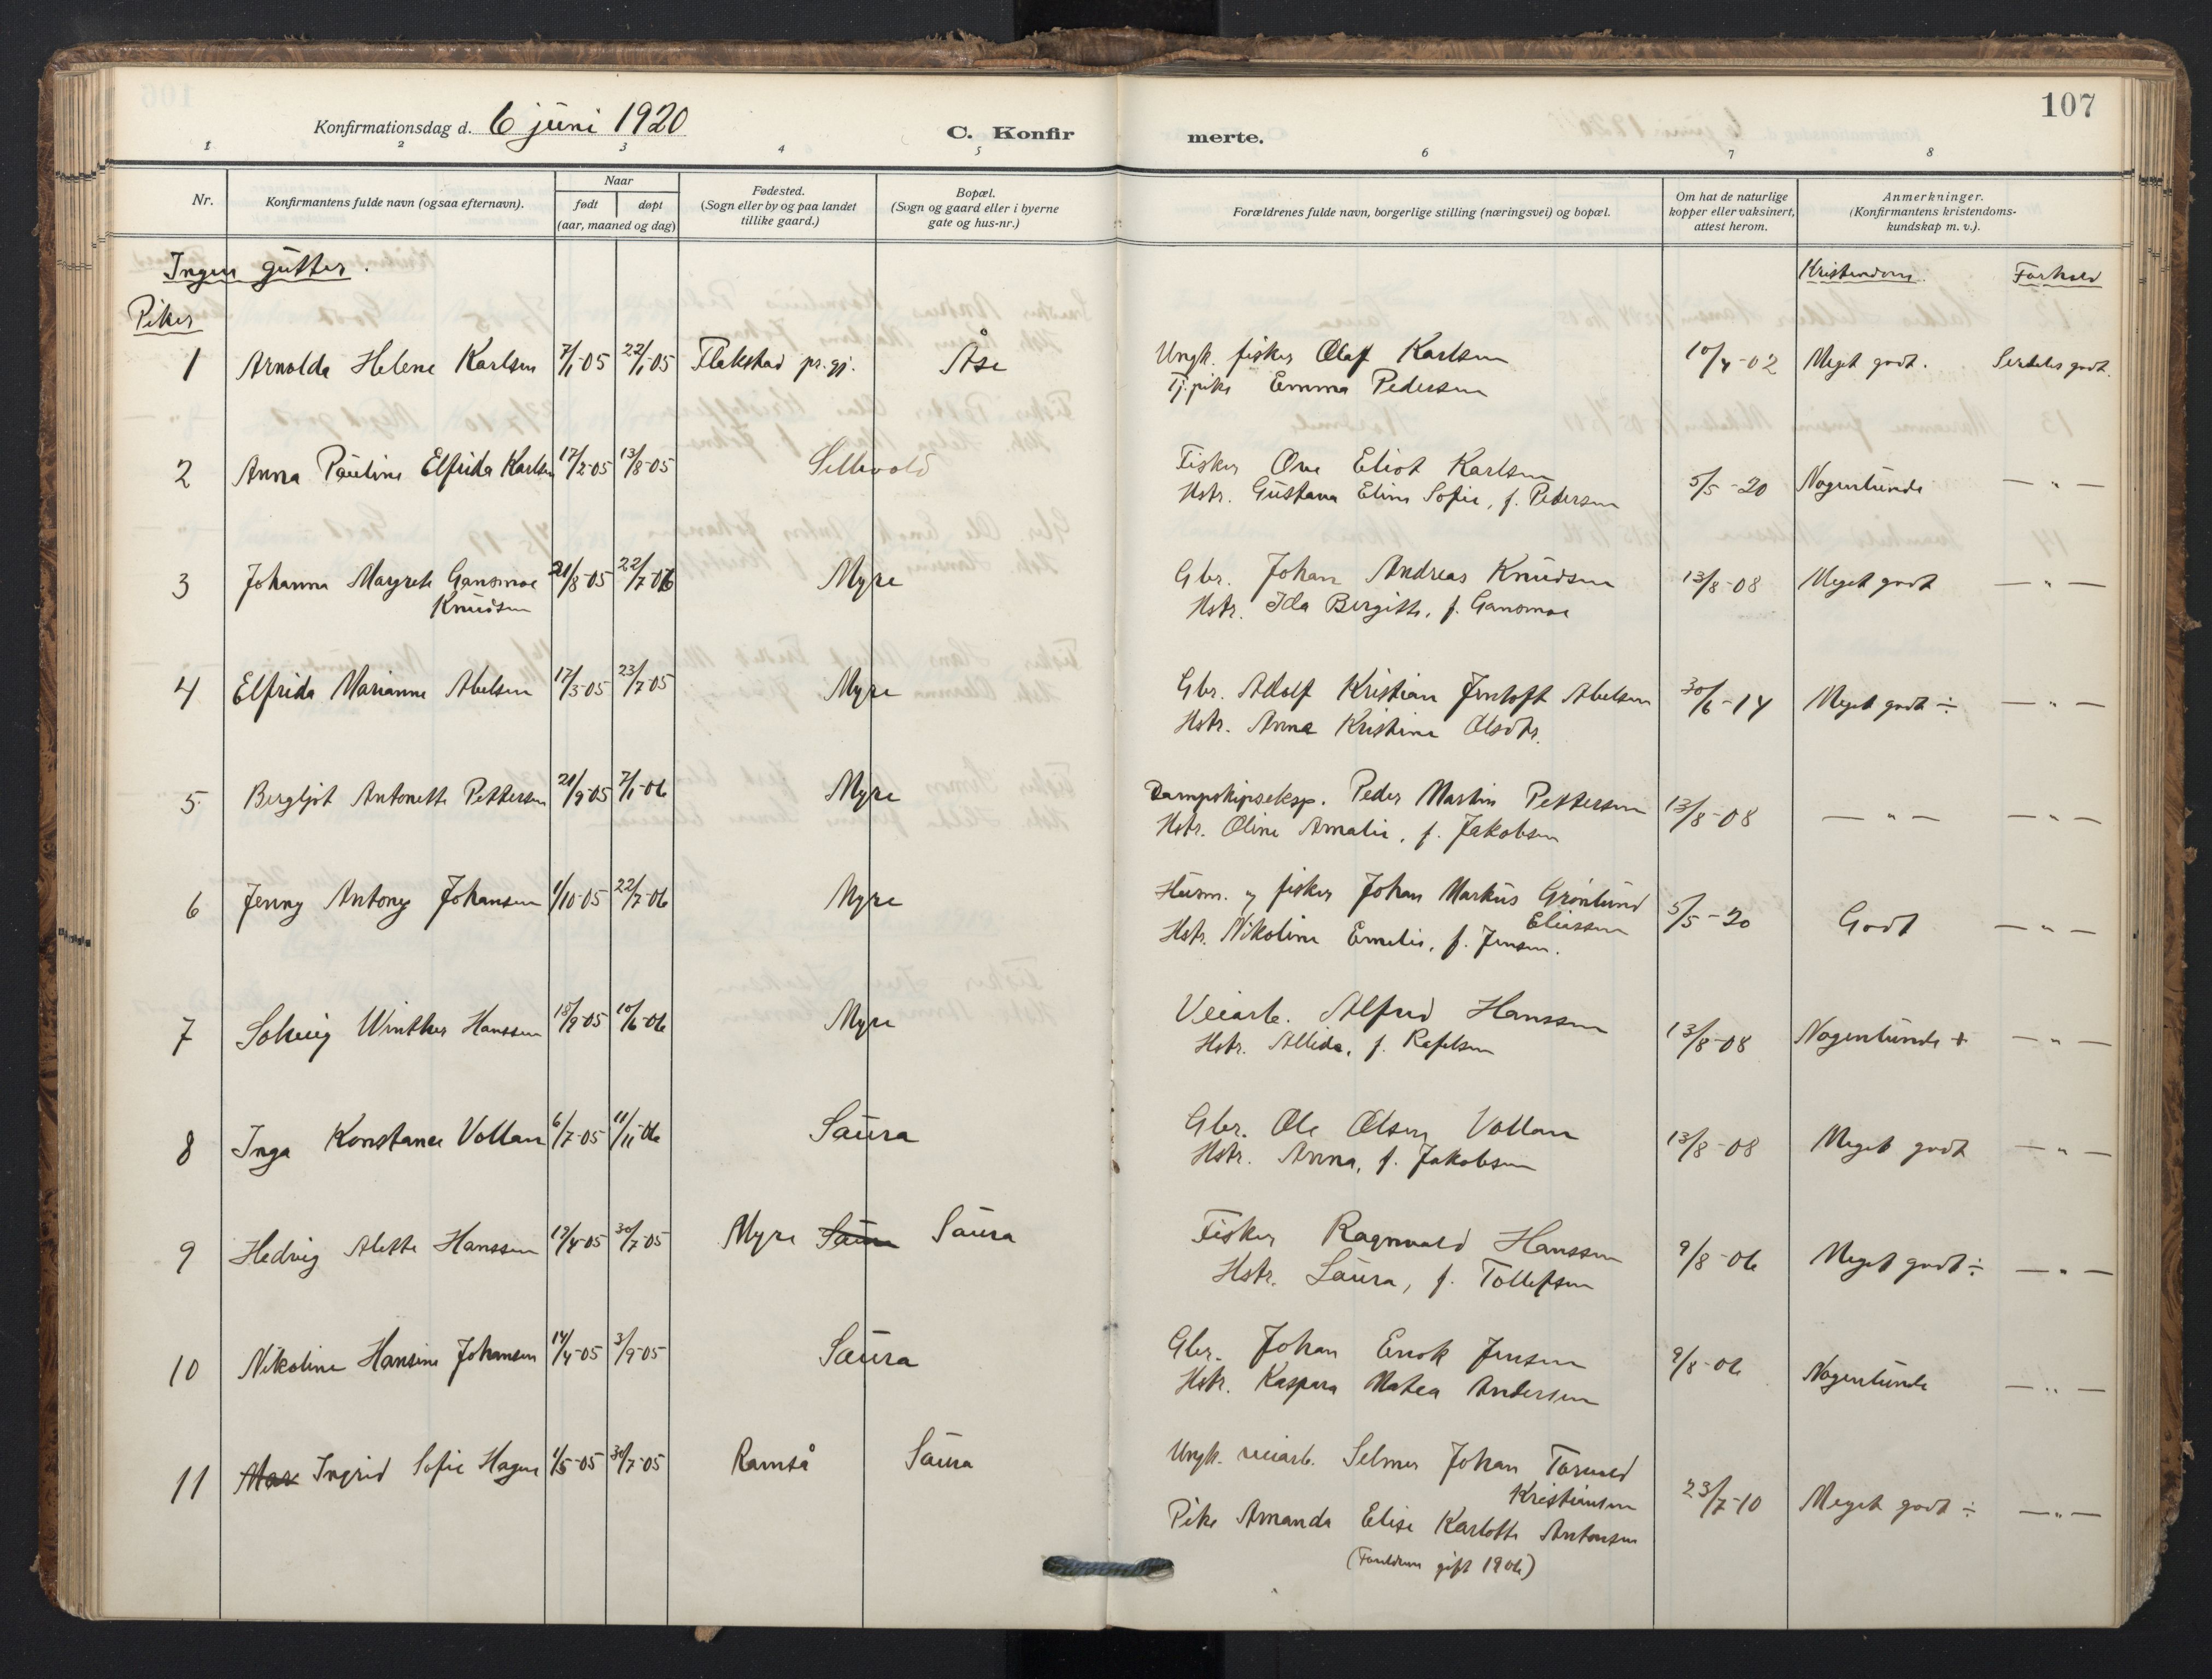 107
Konfirmationsdag d. 6 juni 1920
C. Konfirmerte.
1 2 3 4 5 6 7 8
Nr.
Konfirmantens fulde navn (ogsaa efternavn).
Naar
født døpt
(aar, maaned og dag)
Fødested.
(Sogn eller by og paa landet
tillike gaard.)
Bopæl.
(Sogn og gaard eller i byerne
gate og hus-nr.)
Forældrenes fulde navn, borgerlige stilling (næringsvei) og bopæl.
Om hat de naturlige
kopper eller vaksinert,
attest herom.
Anmerkninger.
(Konfirmantens kristendoms-
kundskap m. v.).
Ingen gutter.
Kristendom. Forhold
Piker
1 Arnolda Helene Karlsen 7/1-05 22/1-05 Flakstad pr.gj. Åse Ungk. fisker Olaf Karlsen 10/4-02 Meget godt. Serdeles godt.
Tj.pike Emma Pedersen
2 Anna Pauline Elfrida Karlsen 17/2-05 13/8-05 Sellevold Fisker Ove Eliot Karlsen 5/5-20 Nogenlunde — " —
Hstr. Gustava Eline Sofie, f. Pedersen
3 Johanna Margrete Gansmoe 21/8-05 22/7-06 Myre Gbr. Johan Andreas Knudsen 13/8-08 Meget godt — " —
Knudsen Hstr. Ida Bergitte, f. Gansmoe
4 Elfrida Marianne Abelsen 17/3-05 23/7-05 Myre Gbr. Adolf Kristian Jentoft Abelsen 30/6-14 Meget godt ÷ — " —
Hstr. Anna Kristine Olsdtr.
5 Bergljot Antonette Pettersen 21/9-05 7/1-06 Myre Dampskipseksp. Peder Martin Pettersen 13/8-08 — " — — " —
Hstr. Oline Amalie, f. Jakobsen
6 Jenny Antony Johansen 1/10-05 22/7-06 Myre Husm. og fisker Johan Markus Grönlund 5/5-20 Godt — " —
Eliassen
Hstr. Nikoline Emelie, f. Jensen.
7 Solveig Winther Hanssen 18/9-05 10/6-06 Myre Veiarb. Alfred Hanssen 13/8-08 Nogenlunde + — " —
Hstr. Allida, f. Rafelsen
8 Inga Konstance Vollan 6/7-05 11/11-06 Saura Gbr. Ole Olsen Vollan 13/8-08 Meget godt — " —
Hstr. Anna, f. Jakobsen
9 Hedvig Alette Hanssen 19/4-05 30/7-05 Myre Saura Saura Fisker Ragnvald Hanssen 9/8-06 Meget godt ÷ — " —
Hstr. Laura, f. Tollefsen
10 Nikoline Hansine Johansen 14/4-05 3/9-05 Saura Gbr. Johan Enok Jensen 9/8-06 Nogenlunde — " —
Hstr. Kaspara Matea Andersen
11 Mar Ingrid Sofie Hagen 1/5-05 30/7-05 Ramså Saura Ungk. veiarb. Selmer Johan Torvald
Kristiansen 23/7-10 Meget godt ÷ — " —
Pike Amanda Elise Karlotte Antonsen
(Foreldrene gift 1906)